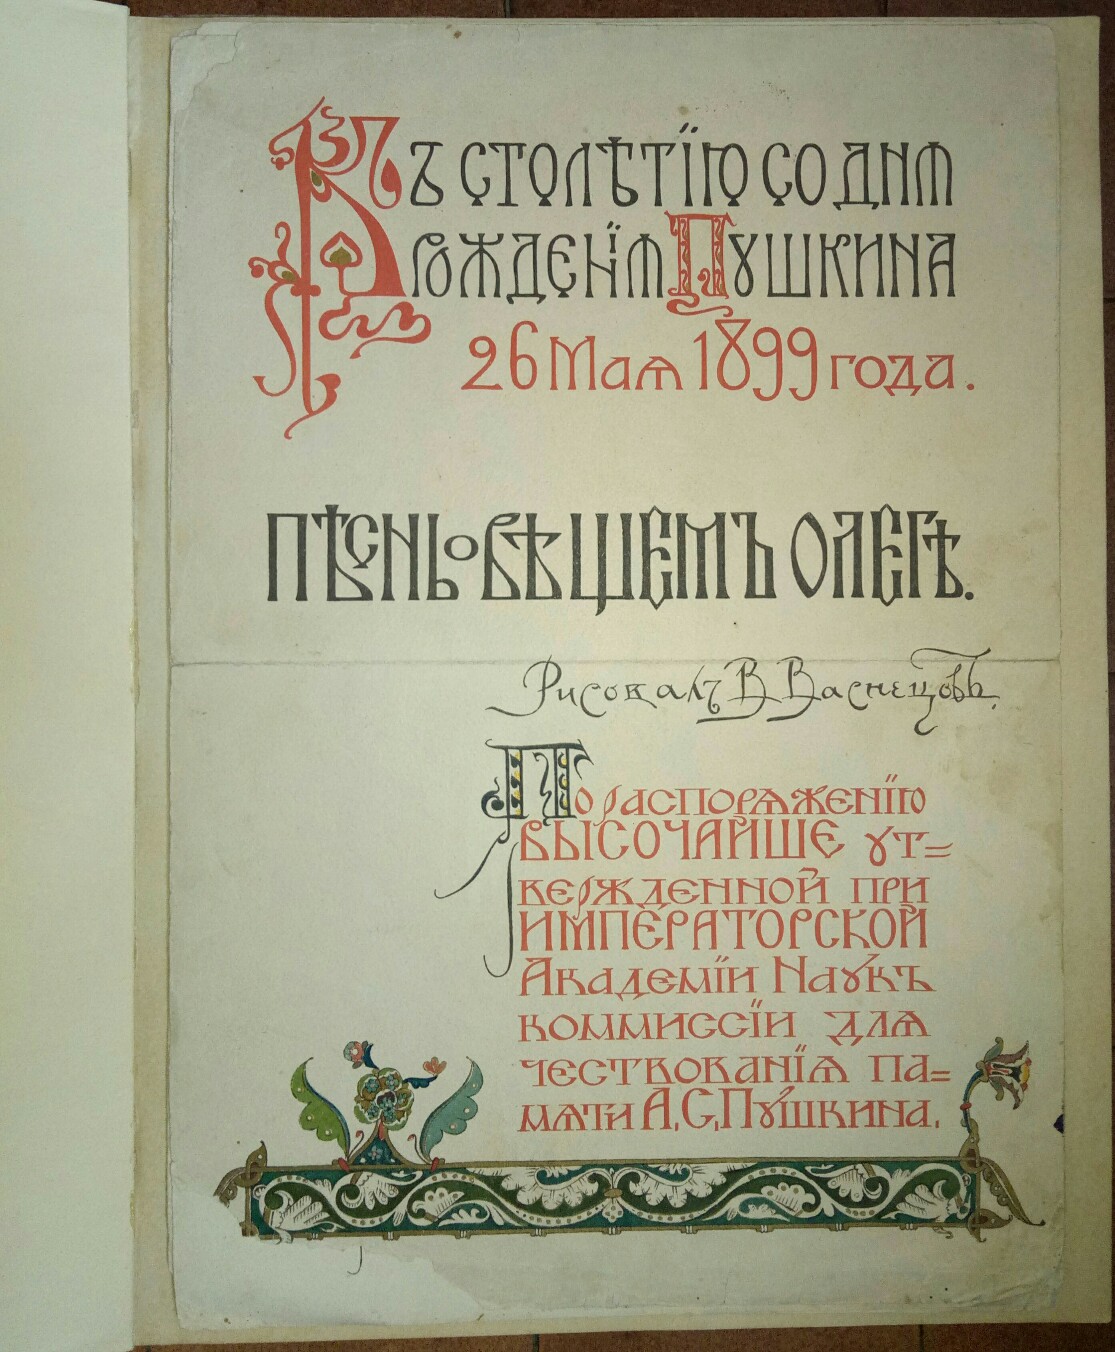 Къ столѣтїю со дня
рожденїя Пушкина
26 Мая 1899 года.
Пѣснь о вѣщемъ Олегѣ.
Рисовалъ В Васнецовъ.
По распоряженїю
ВЫСОЧАЙШЕ ут=
вержденной при
ИМПЕРАТОРСКОЙ
Академїи Наукъ
коммиссїи для
чествованїя па=
мяти А.С.Пушкина.